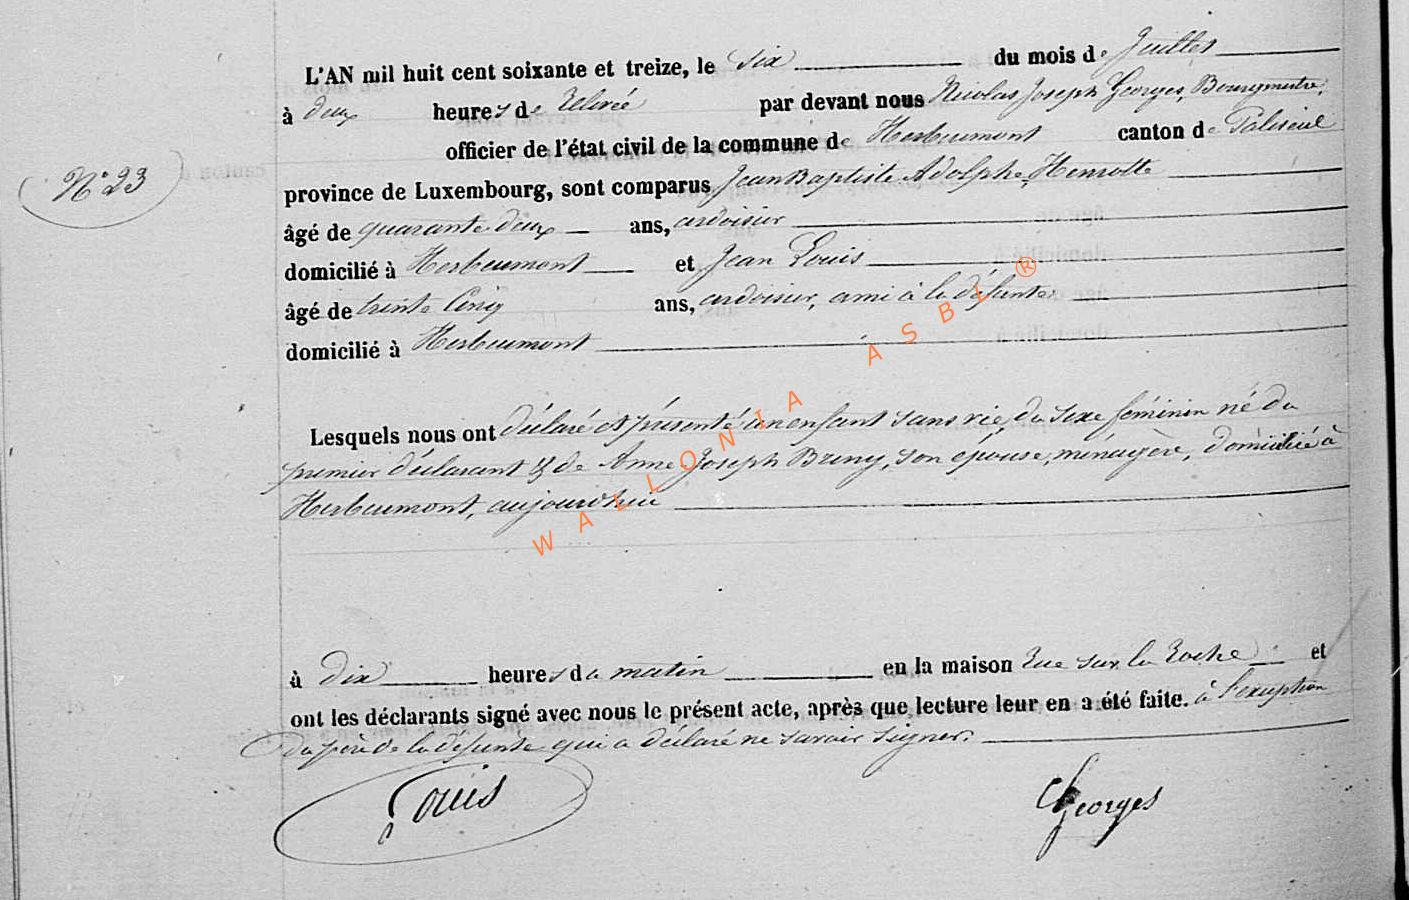 L'AN mil huit cent soixante et treize, le six du mois de Juillet
à deux heures de relevée par devant nous Nicolas Joseph Georges, Bourgmestre,
officier de l'état civil de la commune de Herbeumont canton de Paliseul
N° 23
province de Luxembourg, sont comparus Jean Baptiste Adolphe Henrotte
âgé de quarante deux ans, ardoisier
domicilié à Herbeumont et Jean Louis
âgé de trente cinq ans, ardoisier, ami à la défunte
domicilié à Herbeumont
Lesquels nous ont déclaré et présenté un enfant sans vie, du sexe féminin né du
premier déclarant & de Anne Joseph Breny, son épouse, ménagère, domiciliée à
Herbeumont, aujourd'hui
à dix heures du matin en la maison rue sur la Roche et
ont les déclarants signé avec nous le présent acte, après que lecture leur en a été faite. à l'exception
du père de la défunte qui a déclaré ne savoir signer.
Louis Georges
WALLONIA ASBL ®